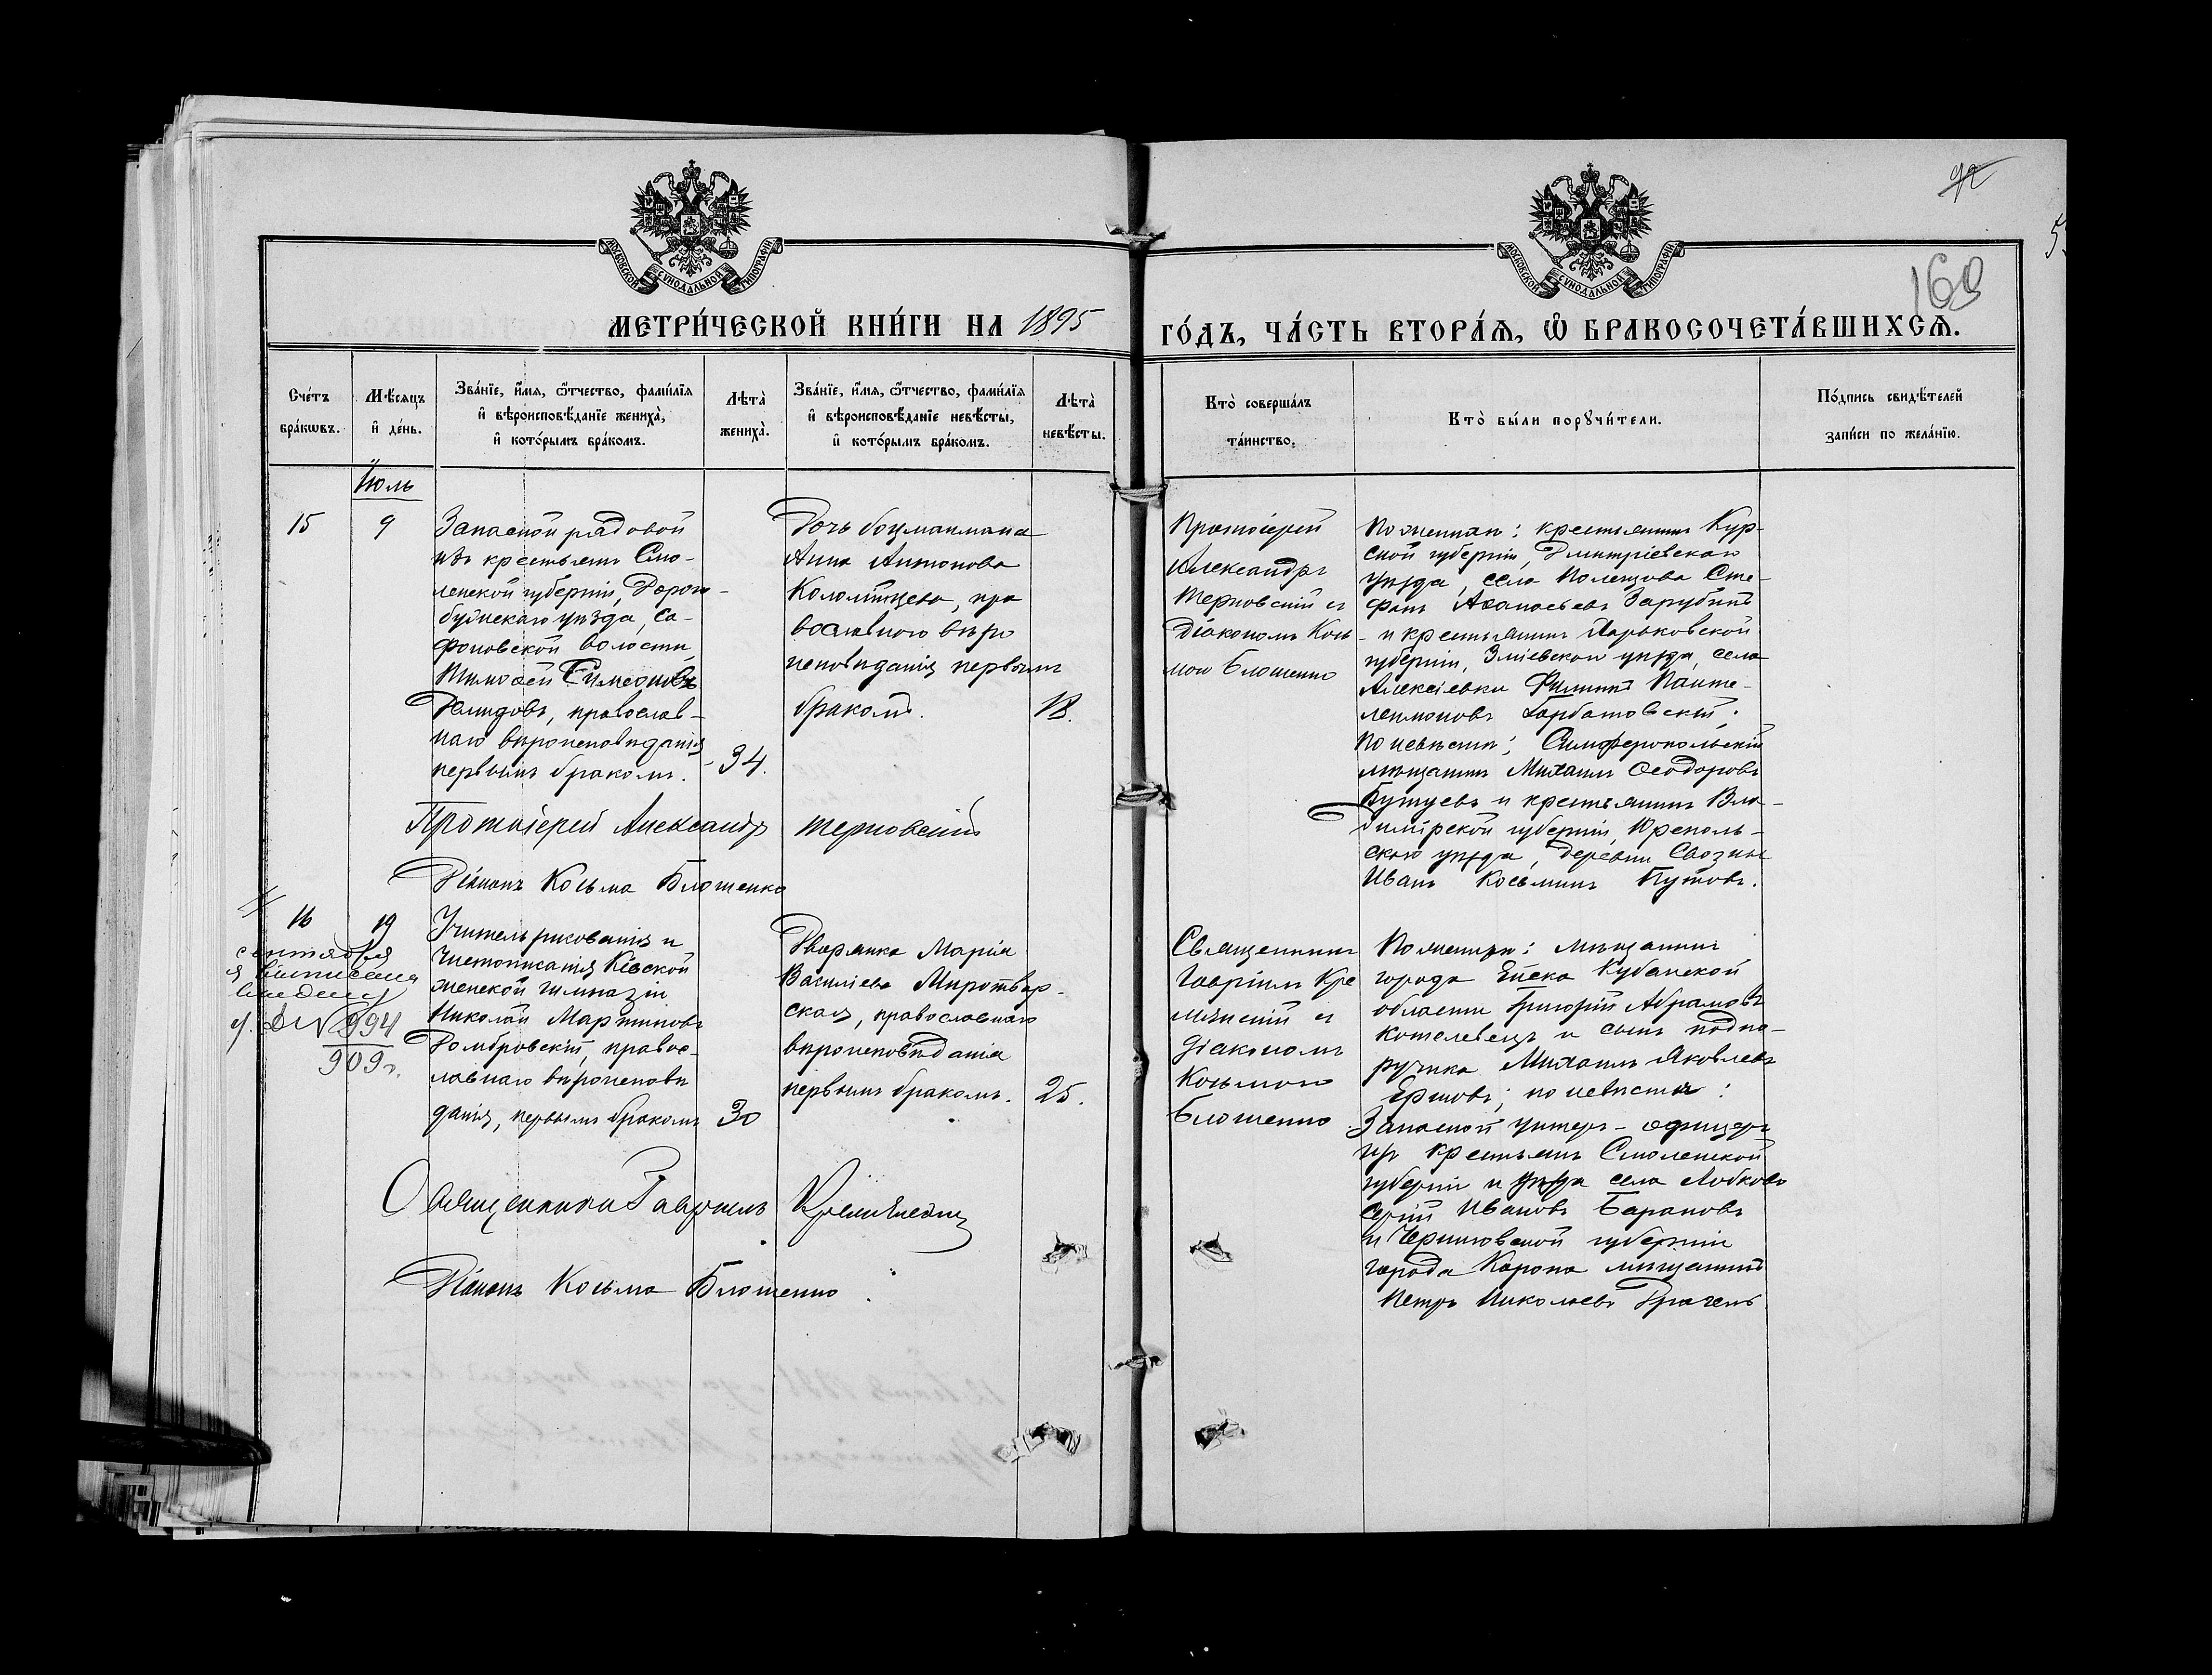 42
5
160
МОСКОВСКОЙ СѴНОДАЛЬНОЙ ТИПОГРАФІИ
МОСКОВСКОЙ СѴНОДАЛЬНОЙ ТИПОГРАФІИ
МЕТРИ́ЧЕСКОЙ КНИ́ГИ НА 1895
ГО́ДЪ, ЧА́СТЬ ВТОРА́Ѧ, Ѽ БРАКОСОЧЕТА́ВШИХСѦ.
Сче́тъ
бра́кѡвъ.
Мѣ́сяцъ
и҆ де́нь.
Зва́нїе, и҆́мя, ѻ҆́тчество, фами́лїя
и҆ вѣроисповѣ́данїе жениха̀,
и҆ кото́рымъ бра́комъ.
Лѣта̀
жениха̀.
Зва́нїе, и҆́мя, ѻ҆́тчество, фами́лїя
и҆ вѣроисповѣ́данїе невѣ́сты,
и҆ кото́рымъ бра́комъ.
Лѣта̀
невѣ́сты.
Кто̀ соверша́лъ
та́инство.
Кто̀ бы́ли порꙋчи́тели.
По́дпись свидѣ́телей
запи́си по жела́нїю.
Іюль
15
9
Запасной рядовой
изъ крестьянъ Смо-
ленской губерніи, Дорого-
бужскаго уѣзда, Са-
фоновской волости,
Тимоѳей Симеоновъ
Демидовъ, православ-
наго вѣроисповѣданія
первымъ бракомъ.
34.
Дочь боцманмана
Анна Антонова
Коломійцева, пра
вославнаго вѣро
исповѣданія первымъ
бракомъ.
18.
Протоіерей
Александръ
Терновскій съ
діакономъ Козь-
мою Блошенко
По женихѣ: крестьянинъ Кур-
ской губерніи, Дмитріевскаго
уѣзда, села Поленцова Сте-
фанъ Аѳанасьевъ Зарубинъ
и крестьянинъ Харьковской
губерніи, Зміевскаго уѣзда, села
Алексѣевки Филиппъ Панте-
леимоновъ Горбатовскій;
по невѣстѣ; Симферопольскій
мѣщанинъ Михаилъ Ѳеодоровъ
Бутуевъ и крестьянинъ Вла-
димірской губерніи, Юрьеполь-
скаго уѣзда, деревни
Иванъ Косьминъ Путовъ.
Протоіерей Александръ Терновскій
Діаконъ Косьма Блошенко
16
19
сентября
я выписана
№ 994
909 г.
Учитель рисованія и
чистописанія Кіевской
женской гимназіи
Николай Мартиновъ
Домбровскій, правос-
лавнаго вѣроисповѣ
данія, первымъ бракомъ
30
Дворянка Марія
Василіева Миротвор-
ская, православнаго
вѣроисповѣданія
первымъ бракомъ.
25.
Священникъ
Гавріилъ Кре
мянскій съ
діакономъ
Козьмою
Блошенко
По женихѣ: мѣщанинъ
города Ейска Кубанской
области Григорій Абрамовъ
Котелевецъ и сынъ подпо-
ручика Михаилъ Яковлевъ
Ершовъ; по невѣстѣ:
Запасной унтеръ-офицеръ
изъ крестьянъ Смоленской
губерніи и уѣзда села Лобково
Сергій Ивановъ Барановъ
и Черниговской губерніи
города Коропа мѣщанинъ
Петръ Николаевъ
Священникъ Гавріилъ Кремянскій
Діаконъ Косьма Блошенко